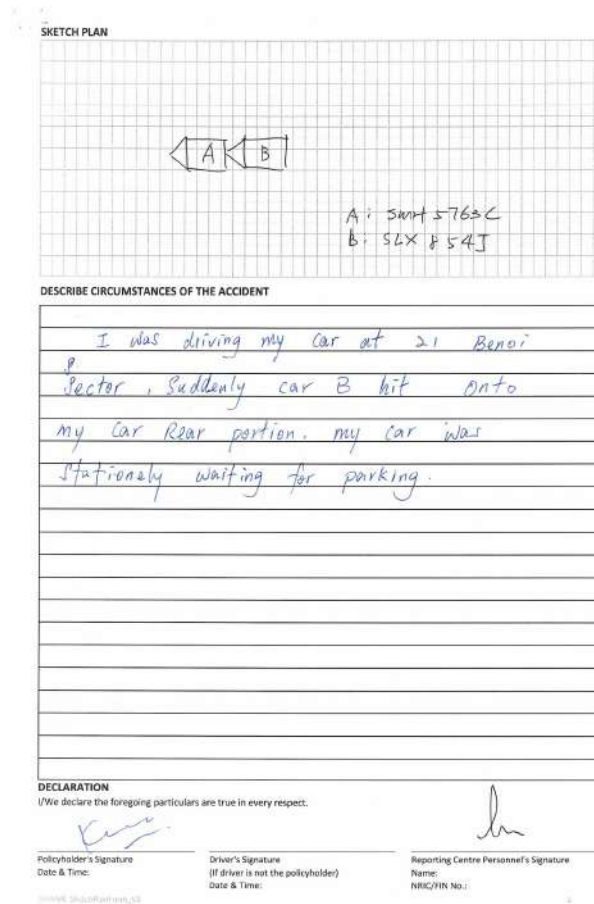 SKETCH PLAN
A B
A: SMH 5763C
B: SLX 854J
DESCRIBE CIRCUMSTANCES OF THE ACCIDENT
I was driving my car at 21 Benoi
Sector, Suddenly car B hit onto
my car Rear portion. my car was
Stationely waiting for parking.
DECLARATION
I/We declare the foregoing particulars are true in every respect.
Policyholder's Signature
Date & Time:
Driver's Signature
(If driver is not the policyholder)
Date & Time:
Reporting Centre Personnel's Signature
Name:
NRIC/FIN No.: